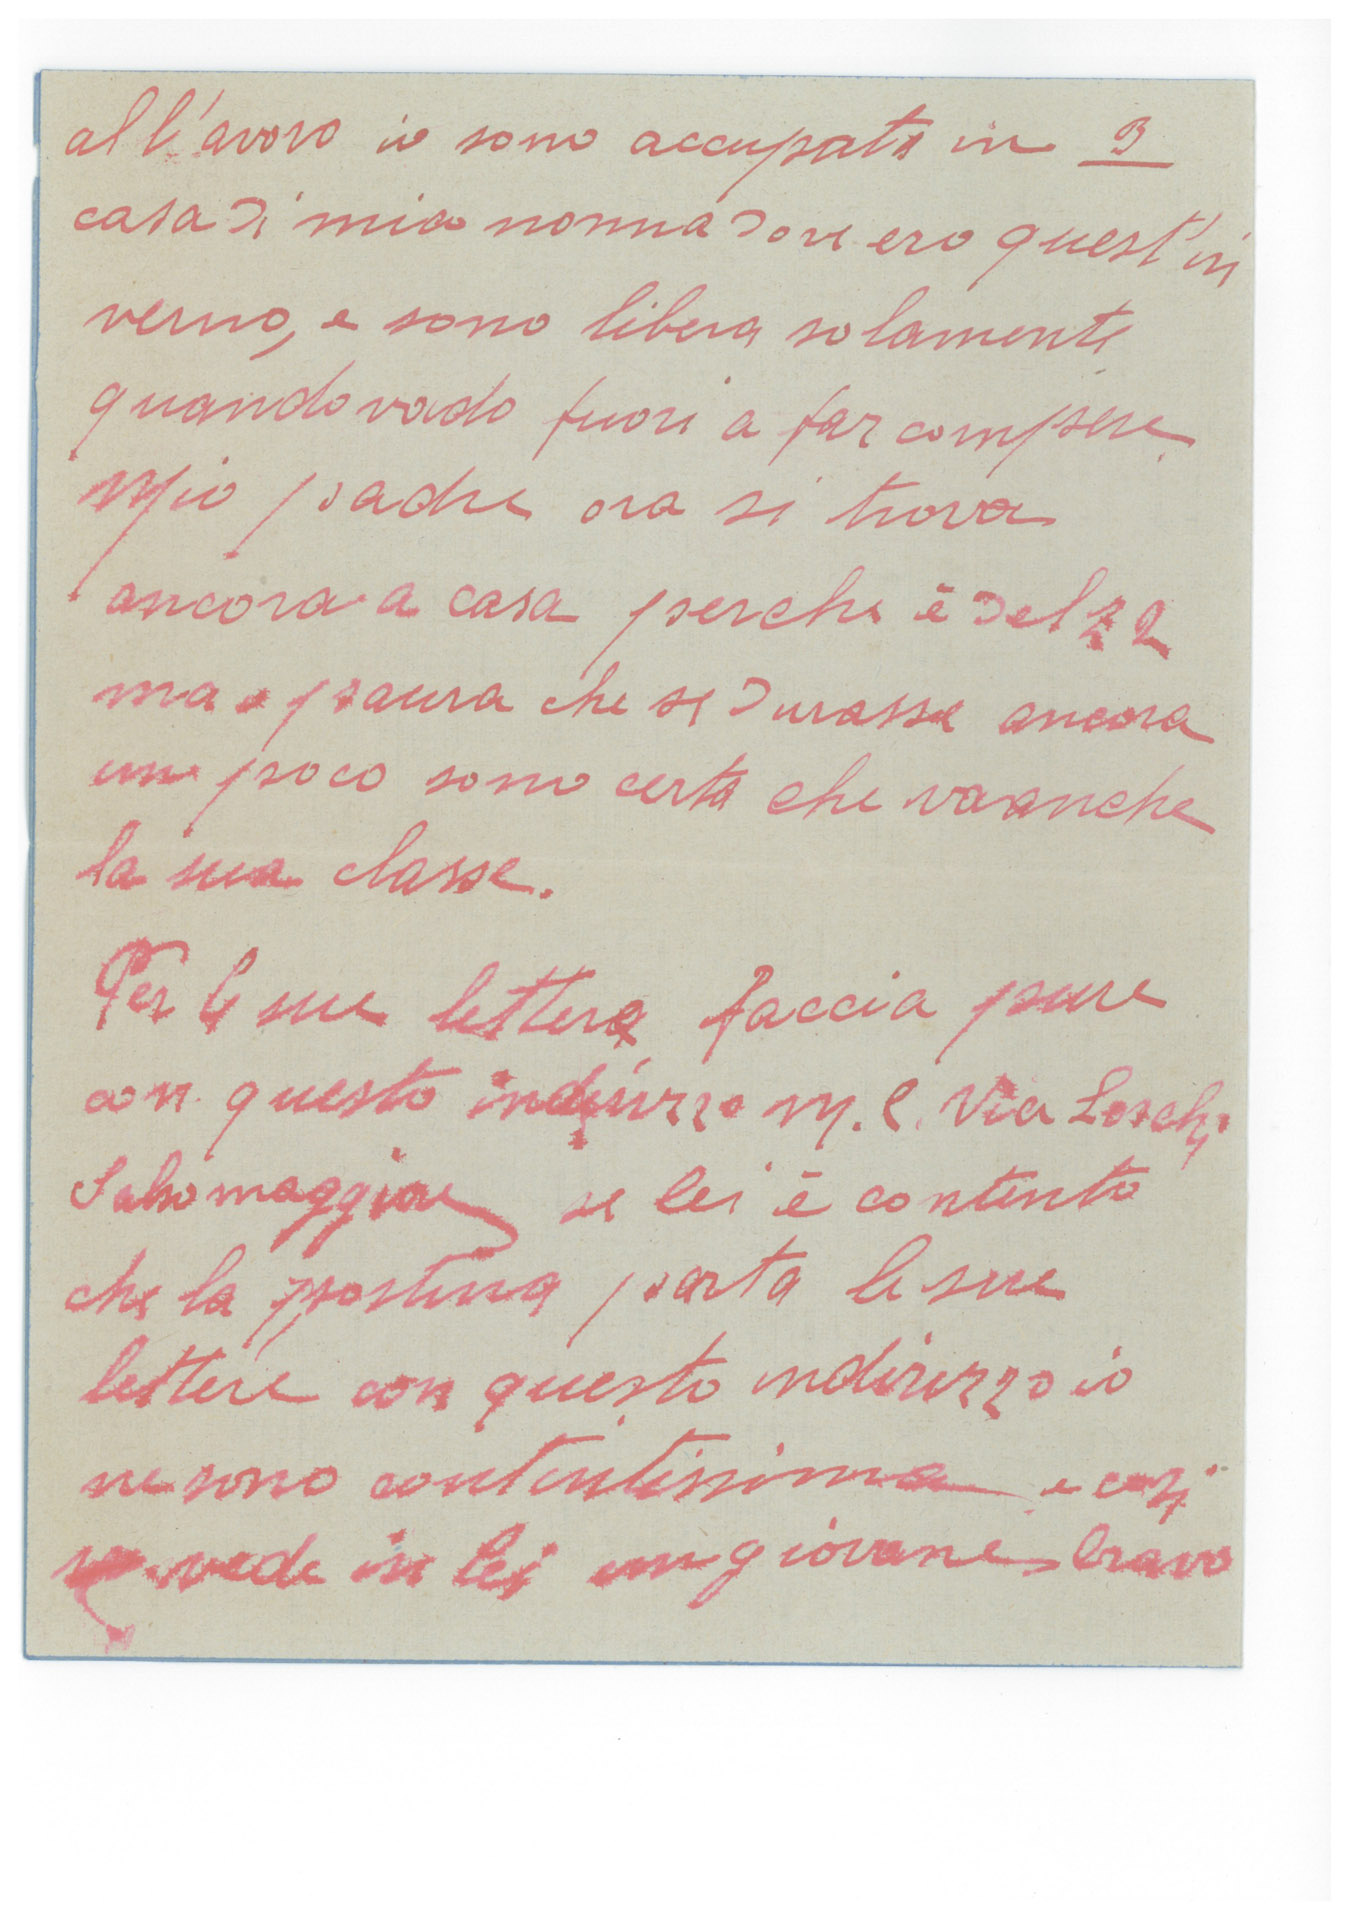 al l'avoro io sono accupata in 3
casa di mia nonna dove ero quest'in
verno, e sono libera solamente
quando vado fuori a far compere.
Mio padre ora si trova
ancora a casa perche è del 72
ma o paura che se durasse ancora
un poco sono certa che va anche
la sua classe.
Per le sue lettere faccia pure
con questo indirizzo M. C. Via Loschi
Salsomaggiore se lei è contento
che la postina porta le sue
lettere con questo indirizzo io
ne sono contentissima e cosi
vede in lei un giovane bravo